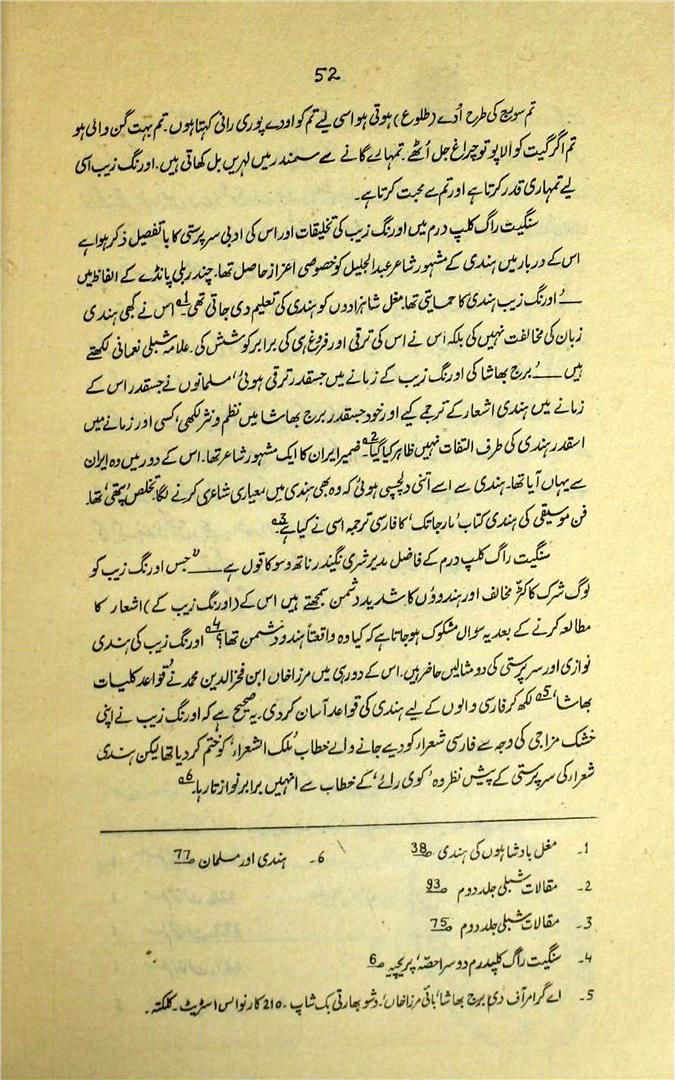 52
تم سورج کی طرح اُدے (طلوع) ہوتی ہو اسی لیے تم کو اودے پوری رانی کہتا ہوں۔ تم بہت گن والی ہو
تم اگر گیت کو الاپو تو چراغ جل اُٹھے۔ تمہارے گانے سے سمندر میں لہریں بل کھاتی ہیں۔ اورنگ زیب اسی
لیے تمہاری قدر کرتا ہے اور تم سے محبت کرتا ہے۔
سنگیت راگ کلپ درم میں اورنگ زیب کی تخلیقات اور اس کی ادبی سرپرستی کا با تفصیل ذکر ہوا ہے
اس کے دربار میں ہندی کے مشہور شاعر عبدالجلیل کو خصوصی اعزاز حاصل تھا۔ چندر بلی پانڈے کے الفاظ میں
__ُ اورنگ زیب ہندی کا حمایتی تھا۔ مغل شاہزادوں کو ہندی کی تعلیم دی جاتی تھی۔1؎ اس نے کبھی ہندی
زبان کی مخالفت نہیں کی بلکہ اُس نے اس کی ترقی اور فروغ ہی کی برابر کوشش کی۔ علامہ شبلی نعمانی لکھتے
ہیں __ُ برج بھاشا کی اورنگ زیب کے زمانے میں جسقدر ترقی ہوئی، مسلمانوں نے جسقدر اس کے
زمانے میں ہندی اشعار کے ترجمے کیے اور خود جسقدر برج بھاشا میں نظم و نثر لکھی، کسی اور زمانے میں
اسقدر ہندی کی طرف التفات نہیں ظاہر کیا گیا۔2؎ ضمیر ایران کا ایک مشہور شاعر تھا۔ اس کے دور میں وہ ایران
سے یہاں آیا تھا۔ ہندی سے اسے اتنی دلچسپی ہوئی کہ وہ بھی ہندی میں معیاری شاعری کرنے لگا۔ تخلص ’پتھی‘ تھا۔
فن موسیقی کی ہندی کتاب ’مارجاتک‘ کا فارسی ترجمہ اسی نے کیا ہے۔3؎
سنگیت راگ کلپ درم کے فاضل مدیر شری نگیندر ناتھ وسو کا قول ہے __ُ جس اورنگ زیب کو
لوگ شرک کا کٹّر مخالف اور ہندوؤں کا شدید دشمن سمجھتے ہیں اس کے (اورنگ زیب کے) اشعار کا
مطالعہ کرنے کے بعد یہ سوال مشکوک ہو جاتا ہے کہ کیا وہ واقعتاً ہندو دشمن تھا؟4؎ اورنگ زیب کی ہندی
نوازی اور سرپرستی کی دو مثالیں حاضر ہیں۔ اس کے دور ہی میں مرزا خاں ابن فخرالدین محمد نے ’قواعد کلیات
بھاشا‘5؎ لکھ کر فارسی والوں کے لیے ہندی کی قواعد آسان کر دی۔ یہ صحیح ہے کہ اورنگ زیب نے اپنی
خشک مزاجی کی وجہ سے فارسی شعراء کو دیے جانے والے خطاب ’ملک الشعراء‘ کو ختم کر دیا تھا لیکن ہندی
شعراء کی سرپرستی کے پیش نظر وہ ’کوی رائے‘ کے خطاب سے انہیں برابر نوازتا رہا۔6؎
1۔ مغل بادشاہوں کی ہندی ص38
6۔ ہندی اور مسلمان ص77
2۔ مقالات شبلی جلد دوم ص93
3۔ مقالات شبلی جلد دوم ص75
4۔ سنگیت راگ کلپدرم دوسرا حصّہ ’پریچیہ‘ ص6
5۔ اے گرامر آف دی ’برج بھاشا‘ بائی مرزا خاں۔ وشو بھارتی بک شاپ ۔ 210 کارنوالس اسٹریٹ ۔ کلکتہ۔